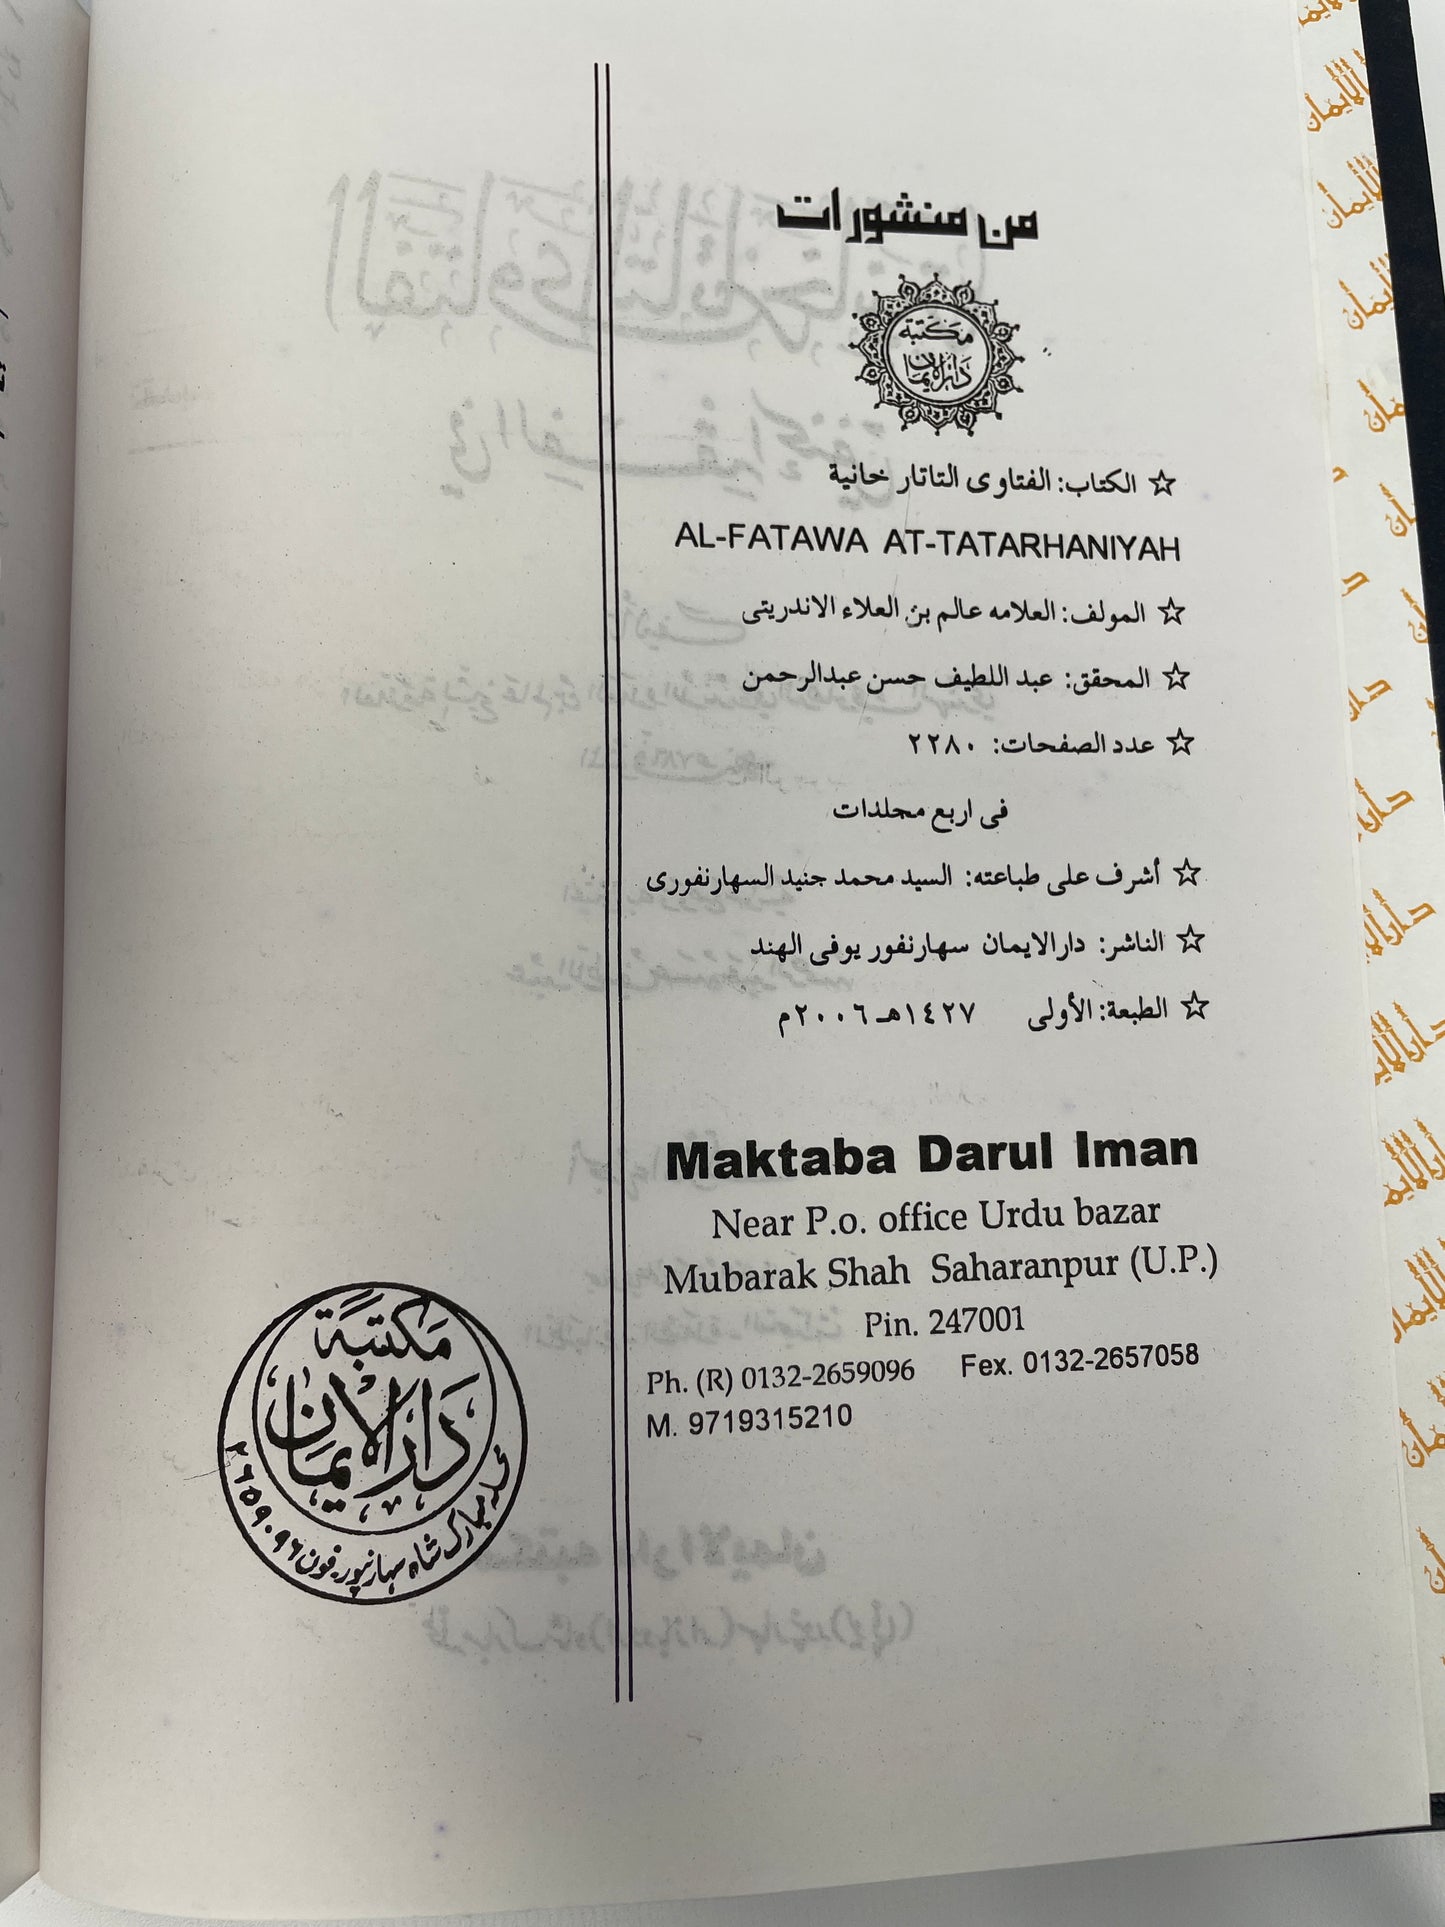 من منشورات
مكتبة
دار الإيمان
☆ الكتاب: الفتاوى التاتار خانية
AL-FATAWA AT-TATARHANIYAH
☆ المولف: العلامه عالم بن العلاء الاندريتى
☆ المحقق: عبد اللطيف حسن عبدالرحمن
☆ عدد الصفحات: ٢٢٨٠
فى اربع مجلدات
☆ أشرف على طباعته: السيد محمد جنيد السهارنفورى
☆ الناشر: دارالايمان سهارنفور يوفى الهند
☆ الطبعة: الأولى ١٤٢٧هـ ٢٠٠٦م
Maktaba Darul Iman
Near P.o. office Urdu bazar
Mubarak Shah Saharanpur (U.P.)
Pin. 247001
Ph. (R) 0132-2659096 Fex. 0132-2657058
M. 9719315210
مكتبة
دار الإيمان
محلہ مبارک شاہ سہارنپور۔فون ۲۶۵۹۰۹۶